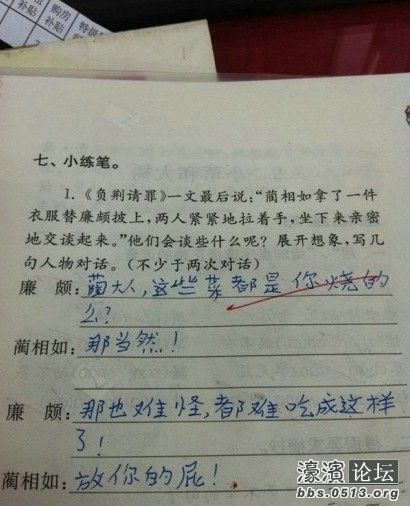 购房
补贴
特级
补贴
七、小练笔。
1.《负荆请罪》一文最后说:“蔺相如拿了一件
衣服替廉颇披上,两人紧紧地拉着手,坐下来亲密
地交谈起来。”他们会谈些什么呢?展开想象,写几
句人物对话。(不少于两次对话)
廉 颇:蔺大人,这些菜都是你烧的
么?
蔺相如:那当然!
廉 颇:那也难怪,都难吃成这样
了!
蔺相如:放你的屁!
濠滨论坛
bbs.0513.org